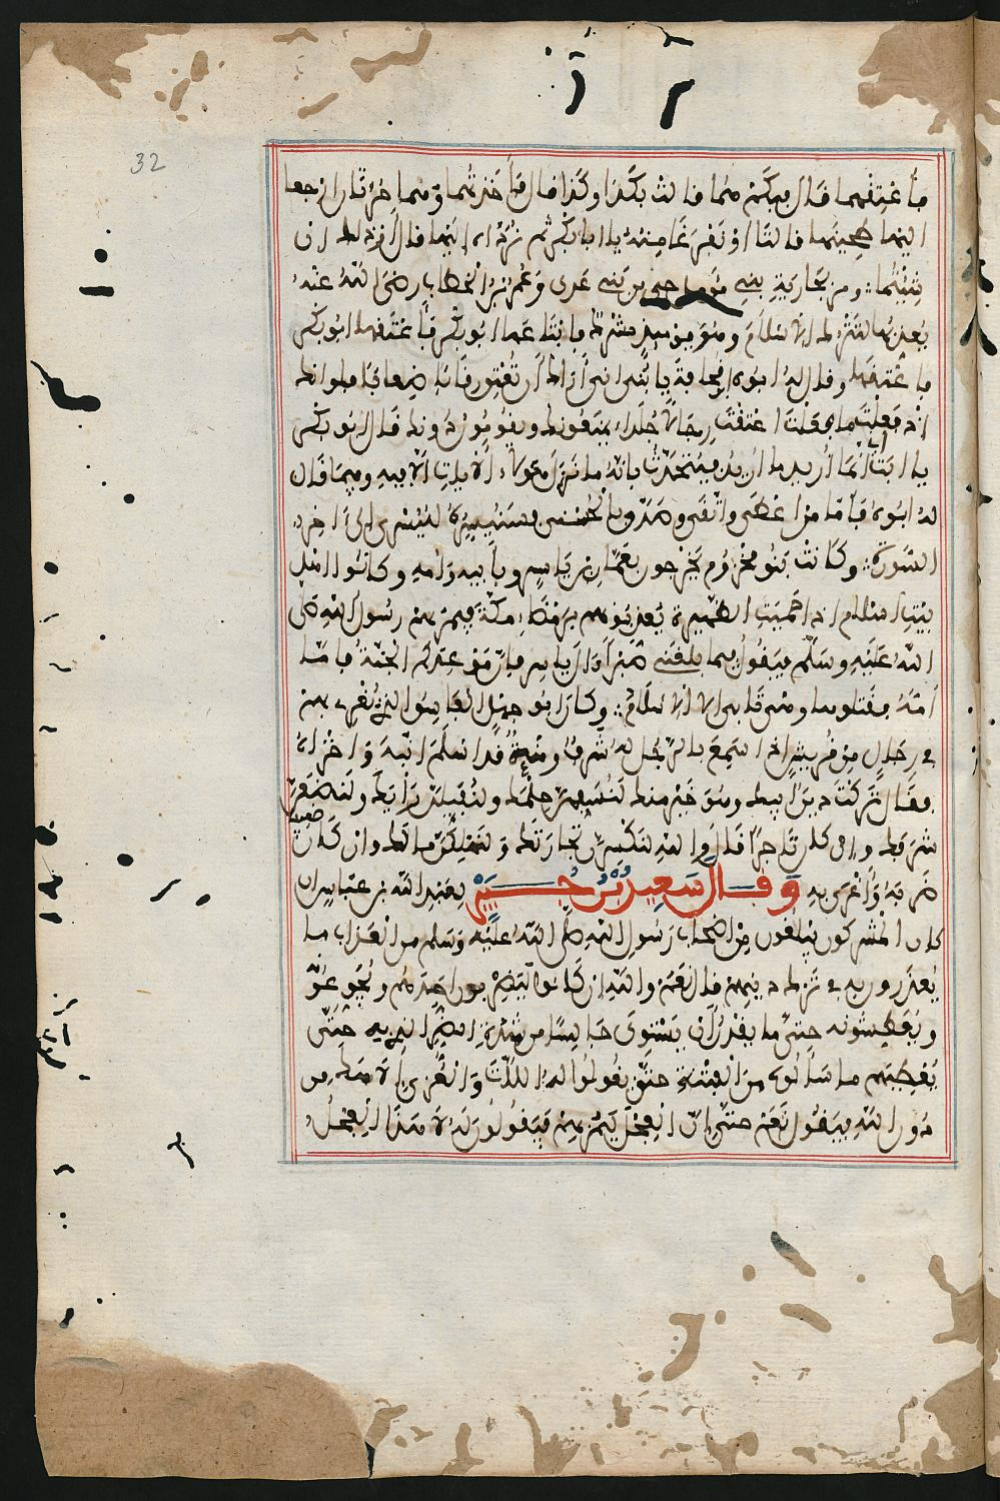 32
فأعتقهما قال فبكم هما قالت بكذا وكذا قال قد أخذتهما وهما حرتان ارجعا
اليها طحينها قالتا او نفرغ منه يا ابا بكر ثم نرده اليها قال او ذلك ان
شئتما ومر بجارية بني مؤمل حي من بني عدي وعمر بن الخطاب رضي الله عنه
يعذبها لتترك الاسلام وهو يومئذ مشرك فابتاعها ابو بكر فأعتقها ابو بكر
فأعتقها وقال له ابوه ابو قحافة يا بني اني أراك تعتق رقابا ضعافا فلو انك
اذ فعلت ما فعلت اعتقت رجالا جلدا يمنعونك ويقومون دونك قال ابو بكر
يا ابت انما أريد ما أريد فيتحدث بانه ما نزل هؤلاء الايات الا فيه وفيما قال
له ابوه فأما من اعطى واتقى وصدق بالحسنى فسنيسره لليسرى الى اخر
السورة وكانت بنو مخزوم يخرجون بعمار بن ياسر وبأبيه وامه وكانوا اهل
بيت اسلام اذا حميت الظهيرة يعذبونهم برمضاء مكة فيمر بهم رسول الله صلى
الله عليه وسلم فيقول فيما بلغني صبرا ءال ياسر فان موعدكم الجنة فاما
أمه فقتلوها وهي تابى الا الاسلام وكان ابو جهل الفاسق الذي يغري بهم
في رجال من قريش اذا سمع بالرجل له شرف ومنعة قد اسلم انبه واخزاه
فقال تركت دين ابيك وهو خير منك لنسفهن حلمك ولنفيلن رأيك ولنضعن
شرفك وان كان تاجرا قال والله لنكسدن تجارتك ولنهلكن مالك وان كان ضعيفا
ضربه وأغرى به وقال سعيد بن جبير لعبد الله بن عباس أن
كان المشركون يبلغون من اصحاب رسول الله صلى الله عليه وسلم من العذاب ما
يعذرون به في ترك دينهم قال نعم والله ان كانوا ليضربون احدهم ويجوعونه
ويعطشونه حتى ما يقدر أن يستوي جالسا من شدة الضر الذي به حتى
يعطيهم ما سألوه من الفتنة حتى يقولوا له اللات والعزى الاهك من
دون الله فيقول نعم حتى ان الجعل ليمر بهم فيقولون له أهذا الجعل